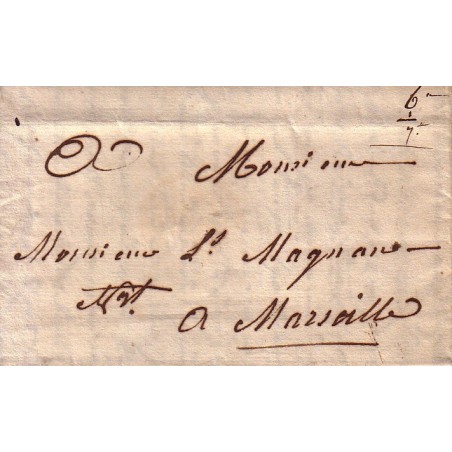 6
7
A Monsieur
Monsieur Ls. Magnan
Ngt.
a Marseille